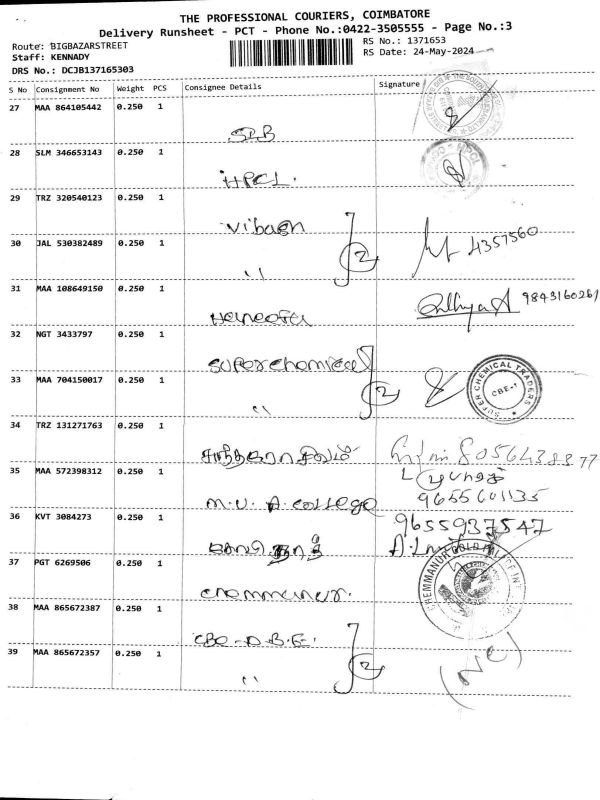 THE PROFESSIONAL COURIERS, COIMBATORE
Delivery Runsheet - PCT - Phone No.:0422-3505555 - Page No.:3
Route: BIGBAZARSTREET
RS No.: 1371653
Staff: KENNADY
RS Date: 24-May-2024
DRS No.: DCJB137165303
S No Consignment No Weight PCS Consignee Details Signature
27 MAA 864105442 0.250 1
28 SLM 346653143 0.250 1
HPCL.
29 TRZ 320540123 0.250 1
30 JAL 530382489 0.250 1
" 2
4357560
31 MAA 108649150 0.250 1
9843160261
32 NGT 3433797 0.250 1
Super chemical
33 MAA 704150017 0.250 1
" 2
SUPER CHEMICAL TRADERS
CBE-1
34 TRZ 131271763 0.250 1
35 MAA 572398312 0.250 1
9655601135
M.U. A. college
36 KVT 3084273 0.250 1
9655937547
37 PGT 6269506 0.250 1
CHEMMANUR GOLD
38 MAA 865672387 0.250 1
CBE - D.B.E.
39 MAA 865672357 0.250 1
" 2
(NC)